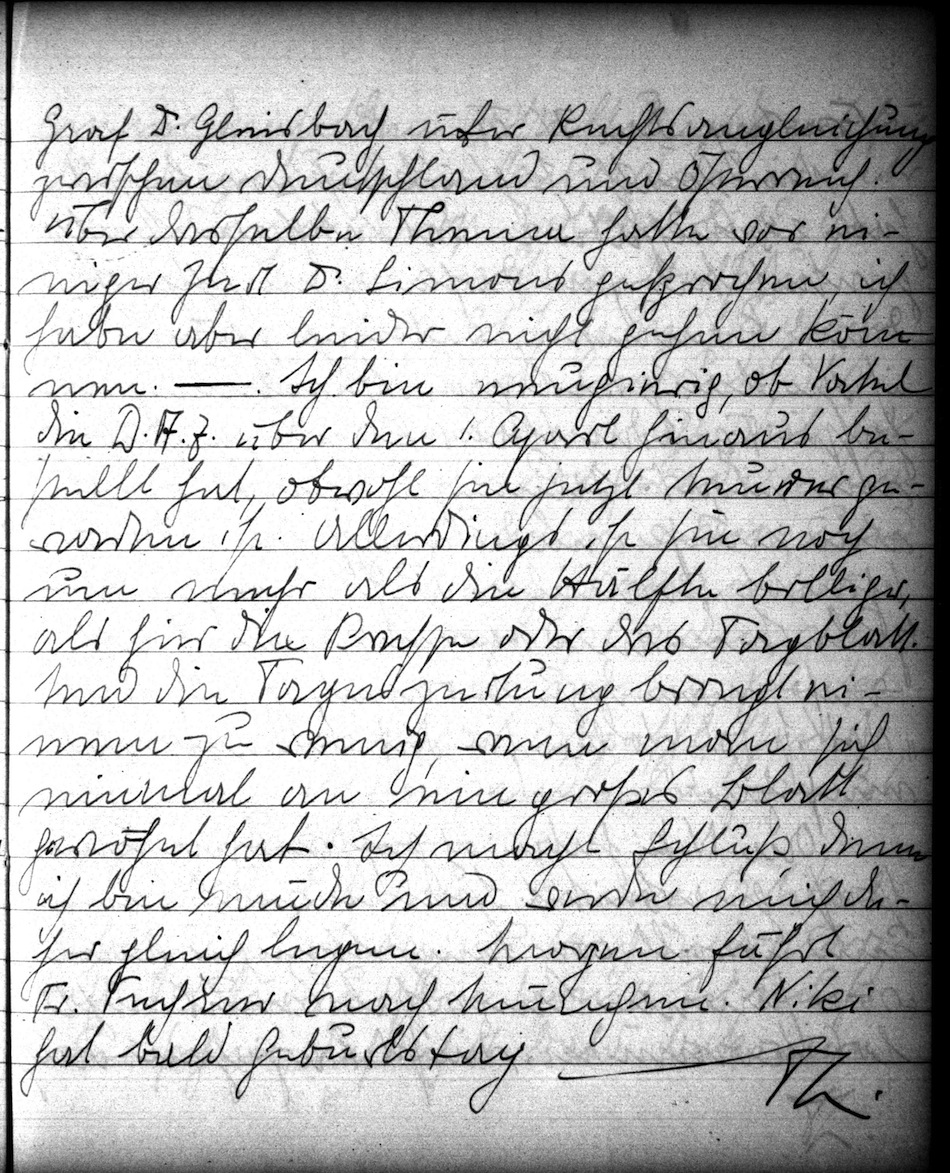 Graf D. Gleisbach über Rechtsangleichung
zwischen Deutschland und Österreich.
Über dasselbe Thema hatte vor ei-
niger Zeit D. Simons gesprochen, ich
habe aber leider nicht gehen kön-
nen. —. Ich bin neugierig, ob Vaterl
die D.A.Z. über den 1. April hinaus be-
stellt hat, obwohl sie jetzt teurer ge-
worden ist. Allerdings ist sie noch
um mehr als die Hälfte billiger,
als hier die Presse oder das Tagblatt.
Und die Tageszeitung bringt ei-
nem zu wenig, wenn man sich
einmal an ein großes Blatt
gewöhnt hat. Ich mach Schluß denn
ich bin müde und werde mich da-
her gleich legen. Morgen fährt
Fr. nach München. Niki
hat bald Geburtstag
Th.